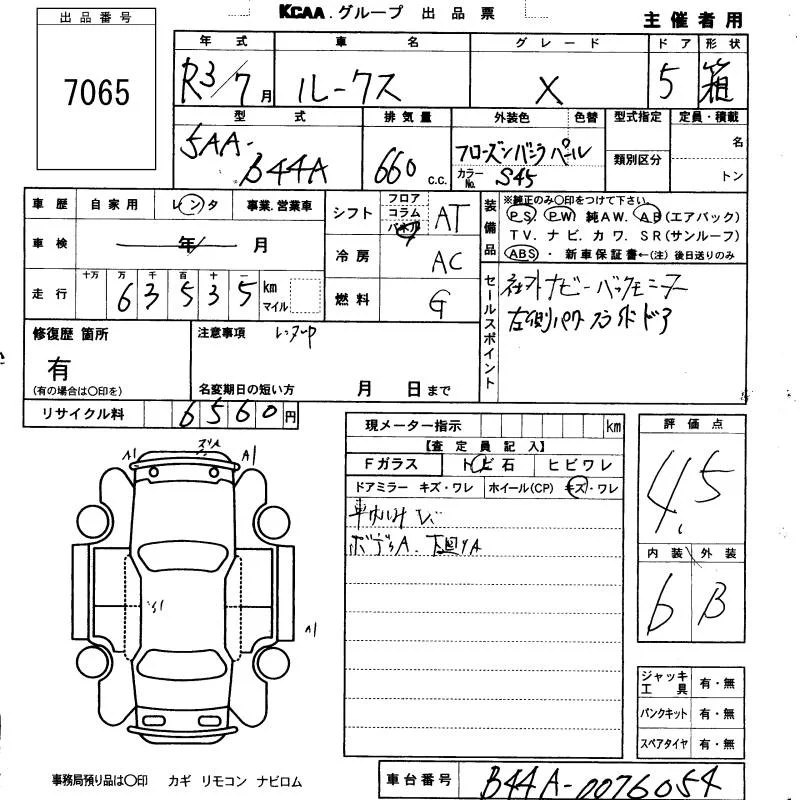 KCAA.グループ 出品票
主催者用
出品番号
7065
年式 車名 グレード ドア 形状
R3/7月 ルークス X 5 箱
型式 排気量 外装色 色替 型式指定 定員・積載
5AA-B44A 660 c.c. フローズンバニラパール 名
カラーNo. S45 類別区分 トン
車歴 自家用 レンタ 事業.営業車
車検 年 月
走行 十万 万 千 百 十 一
63535 km マイル
シフト フロア コラム パネル AT
冷房 AC
燃料 G
装備品
※純正のみ〇印をつけて下さい。
PS PW 純AW. AB(エアバック)
TV. ナビ. カワ. SR(サンルーフ)
ABS ・ 新車保証書←(注) 後日送りのみ
セールスポイント
社外ナビーバックモニター
左側パワスライドドア
修復歴 箇所
有
(有の場合は〇印を)
注意事項
名変期日の短い方 月 日まで
リサイクル料 6560円
現メーター指示 km
【査定員記入】
Fガラス トビ石 ヒビワレ
ドアミラー キズ・ワレ ホイール(CP) キズ・ワレ
ボディA.下回りA
評価点
4.5
内装 外装
6 B
A1 A1
A1
ジャッキ工具 有・無
パンクキット 有・無
スペアタイヤ 有・無
事務局預り品は〇印 カギ リモコン ナビロム
車台番号 B44A-0076054